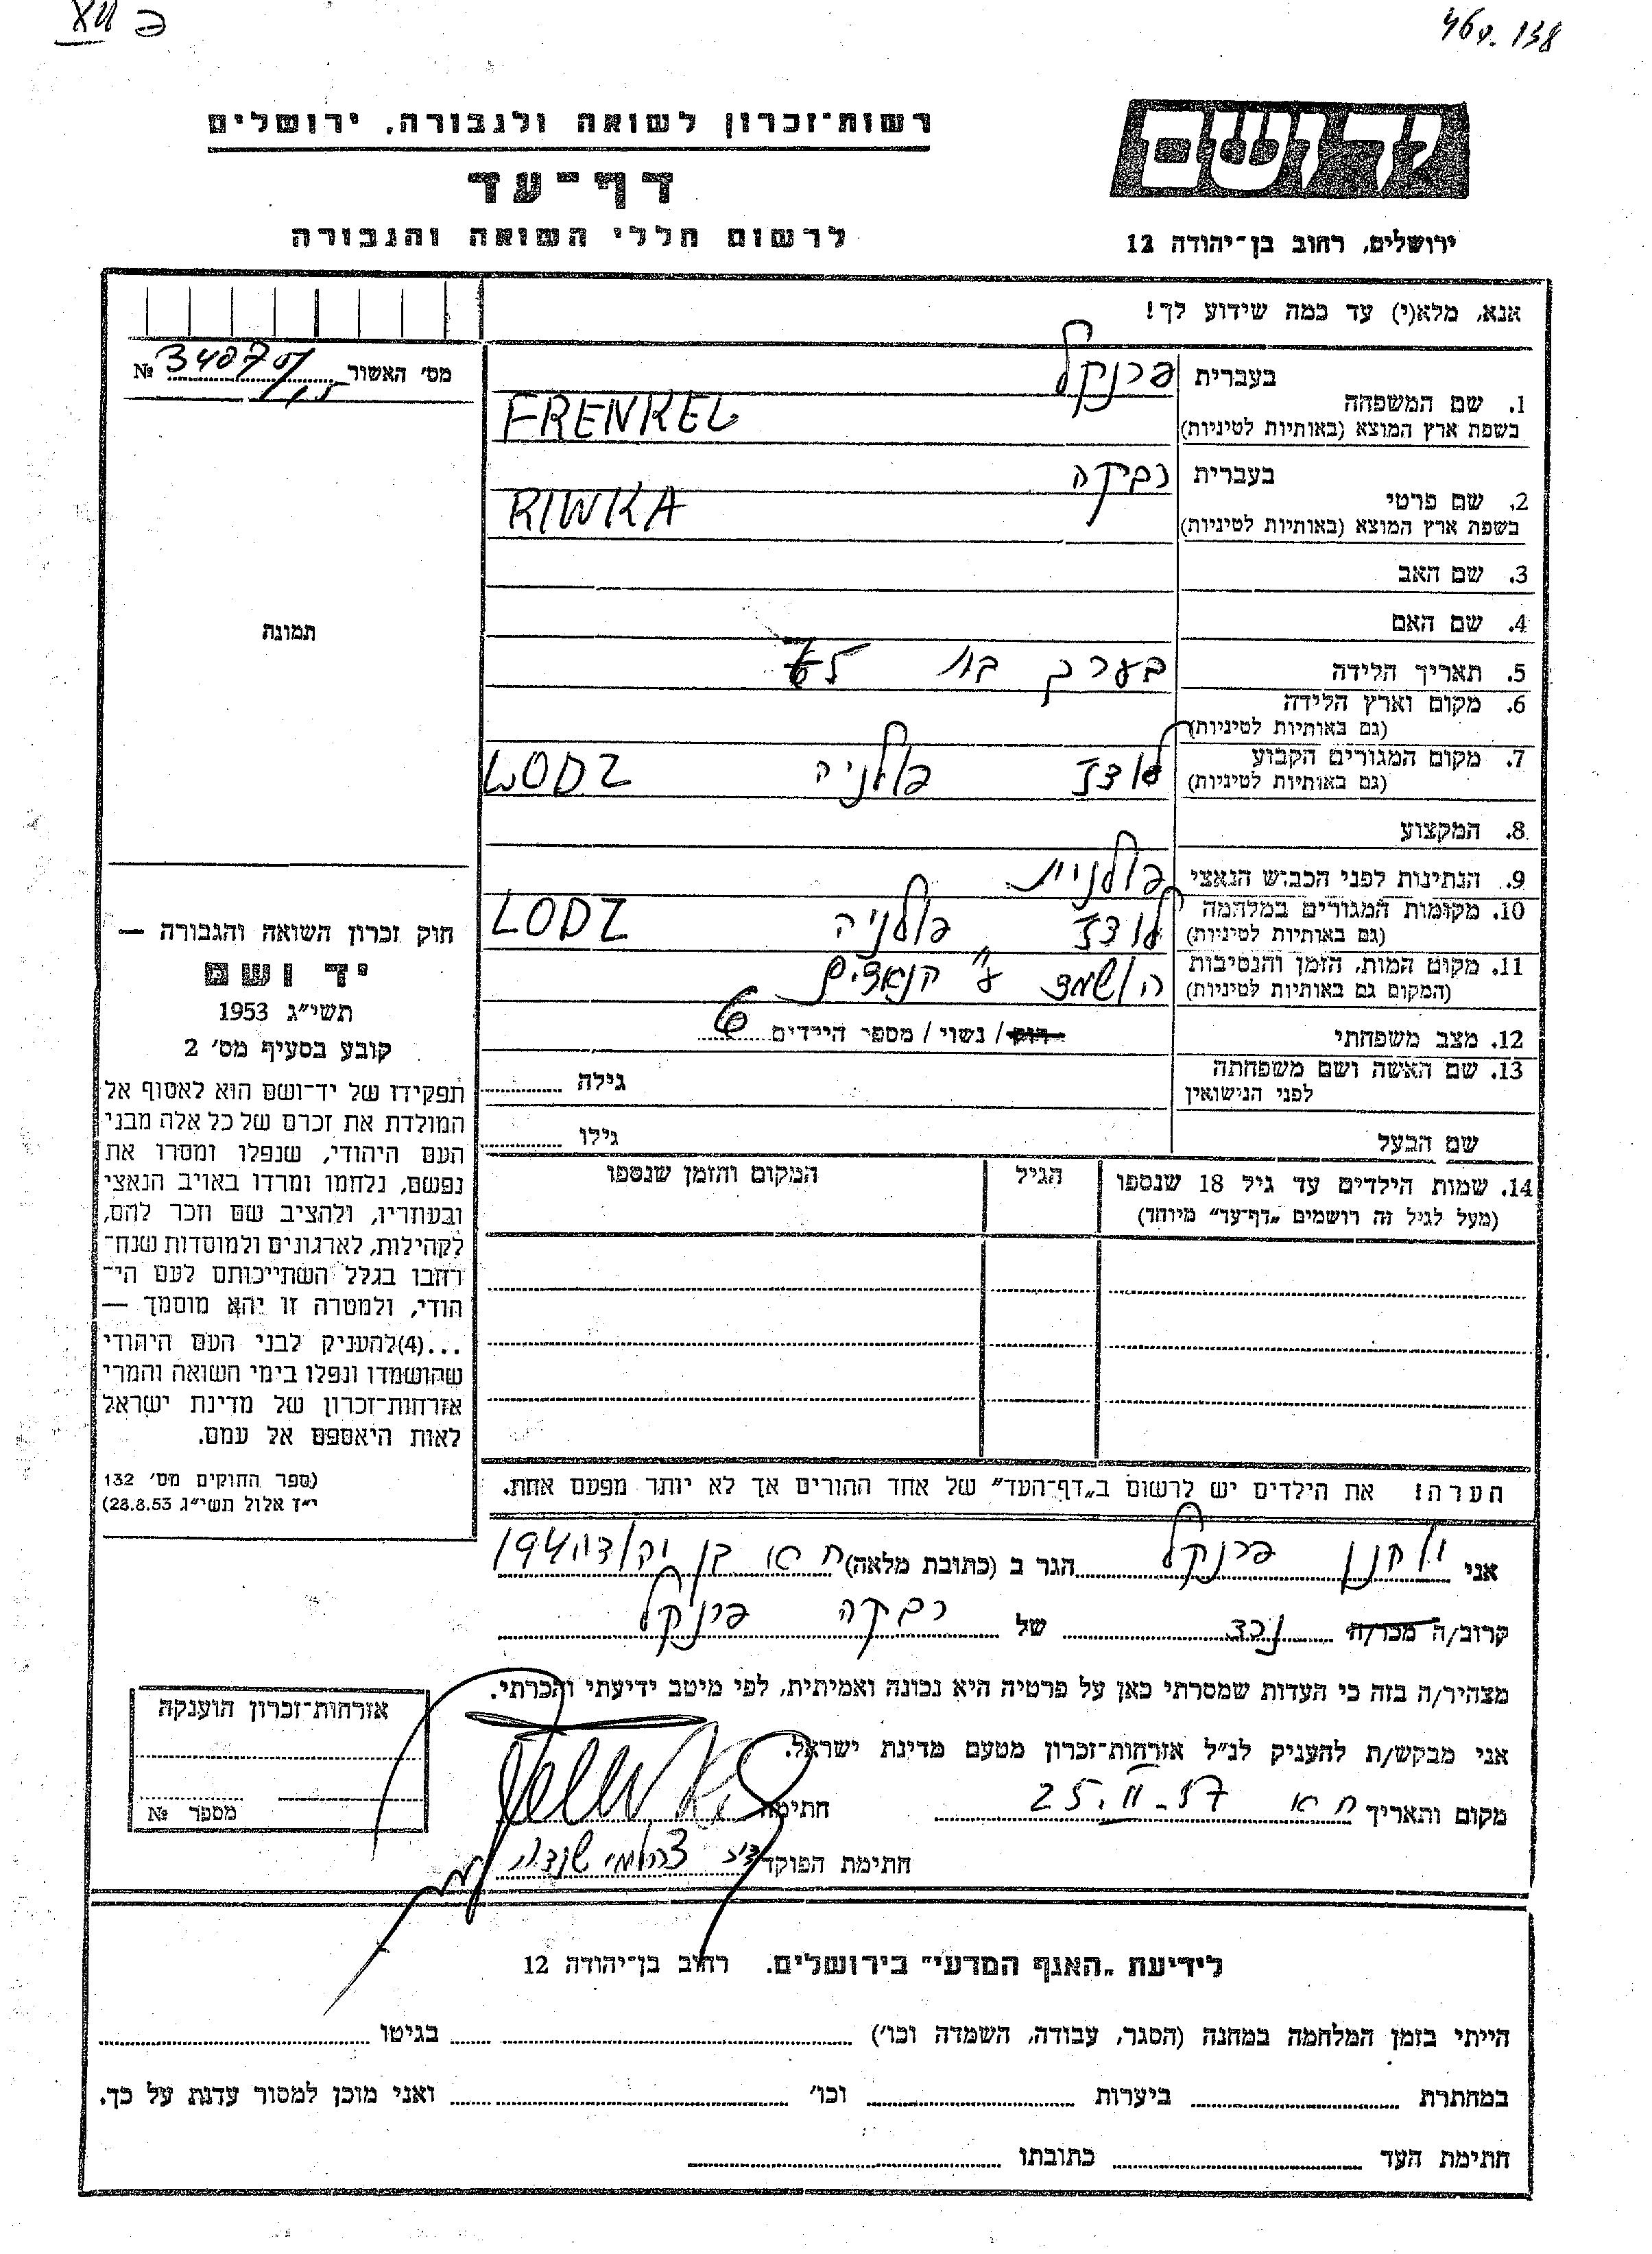 XVII פ
46 ע. 138
רשות־זכרון לשואה ולגבורה, ירושלים
דף־עד
לרשום חללי השואה והגבורה
יד ושם
ירושלים, רחוב בן־יהודה 12
אנא, מלא(י) עד כמה שידוע לך!
מס׳ האשור № 
תמונה
חוק זכרון השואה והגבורה —
יד ושם
תשי״ג 1953
קובע בסעיף מס׳ 2
תפקידו של יד־ושם הוא לאסוף אל
המולדת את זכרם של כל אלה מבני
העם היהודי, שנפלו ומסרו את
נפשם, נלחמו ומרדו באויב הנאצי
ובעוזריו, ולהציב שם וזכר להם,
לקהילות, לארגונים ולמוסדות שנח־
רחבו בגלל השתייכותם לעם הי־
הודי, ולמטרה זו יהא מוסמך —
...(4)להעניק לבני העם היהודי
שהושמדו ונפלו בימי השואה והמרי
אזרחות־זכרון של מדינת ישראל
לאות היאספם אל עמם.
(ספר החוקים מס׳ 132
י״ז אלול תשי״ג 28.8.53)
בעברית פרנקל
1. שם המשפחה
בשפת ארץ המוצא (באותיות לטיניות) FRENKEL
בעברית רביקה
2. שם פרטי
בשפת ארץ המוצא (באותיות לטיניות) RIWKA
3. שם האב
4. שם האם
5. תאריך הלידה בערך בת
6. מקום וארץ הלידה
(גם באותיות לטיניות)
7. מקום המגורים הקבוע לודז פולניה LODZ
(גם באותיות לטיניות)
8. המקצוע
9. הנתינות לפני הכבוש הנאצי פולנית
10. מקומות המגורים במלחמה לודז פולניה LODZ
(גם באותיות לטיניות)
11. מקום המות, הזמן והנסיבות הושמד ע״י הנאצים
(המקום גם באותיות לטיניות)
12. מצב משפחתי רוק / נשוי / מספר הילדים 6
13. שם האשה ושם משפחתה גילה
לפני הנישואין
שם הבעל גילו
14. שמות הילדים עד גיל 18 שנספו הגיל המקום והזמן שנספו
(מעל לגיל זה רושמים „דף־עד״ מיוחד)
הערה! את הילדים יש לרשום ב„דף־העד״ של אחד ההורים אך לא יותר מפעם אחת.
אני יוחנן פרנקל הגר ב (כתובת מלאה) ת א בן יהודה 194
קרוב/ה מכר/ה נכד של רבקה פרנקל
מצהיר/ה בזה כי העדות שמסרתי כאן על פרטיה היא נכונה ואמיתית, לפי מיטב ידיעתי והכרתי.
אני מבקש/ת להעניק לנ״ל אזרחות־זכרון מטעם מדינת ישראל.
מקום ותאריך ת א 25.II.57 חתימה
חתימת הפוקד
אזרחות־זכרון הוענקה
מספר №
לידיעת „האגף המדעי״ בירושלים. רחוב בן־יהודה 12
הייתי בזמן המלחמה במחנה (הסגר, עבודה, השמדה וכו׳) בגיטו
במחתרת ביערות וכו׳ ואני מוכן למסור עדות על כך.
חתימת העד כתובתו